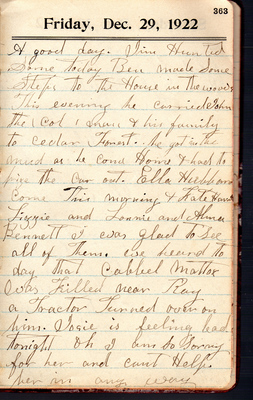 363
Friday, Dec. 29, 1922
A good day. Jim Hunted
Some today Ben made Some
Steps to the House in the woods
This evening he Carried John
the Col & his family
to Cedar Forest. he got in the
mud as he come Home & had to
the car out. Ella Hubbard
Come This morning & Kate
Lizzie and Lonnie and Alma
Bennett I was glad to See
all of Them. we heard to
day that Mattox
Was Killed near Ray
a Tractor Turned over on
him. Josie is feeling bad
tonight Oh I am So Sorry
for her and cant Help
her in any way